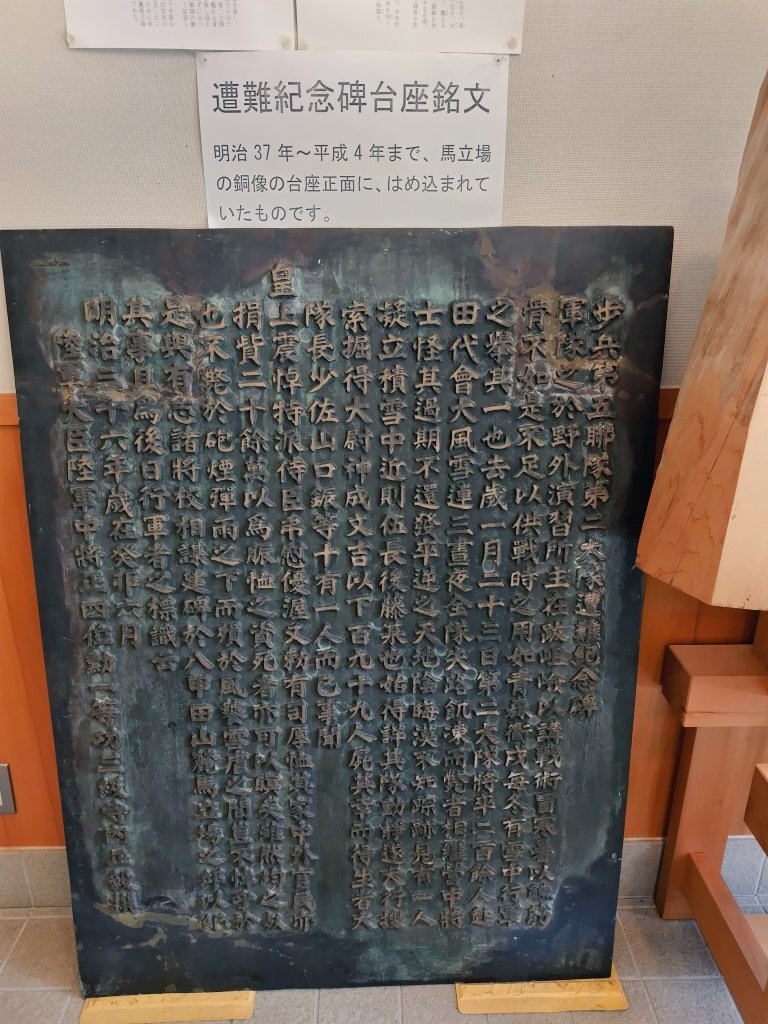 遭難紀念碑台座銘文
明治37年～平成4年まで、馬立場
の銅像の台座正面に、はめ込まれて
いたものです。
歩兵第五聯隊第二大隊遭難紀念碑
軍隊之於野外演習所主在跋岨嶮以講戦術冒寒暑以
骨不如是不足以供戦時之用如青森衛戍毎冬有雪中行軍
之舉其一也去歳一月二十三日第二大隊将卒二百餘人
田代會大風雪連三晝夜全隊失路飢凍而斃者相継営中将
士怪其過期不還発卒迎之天地陰晦漠不知踪跡見有一人
凝立積雪中近則伍長後藤某也始得詳其隊動静遂大行捜
索掘得大尉神成文吉以下百九十九人屍其幸而得生者大
隊長少佐山口鋠等十有一人而已事聞
皇上震悼特派侍臣弔慰優渥又勅有司厚恤其家中外官民亦
捐貲二十餘萬以為賑恤之資死者亦可以瞑矣雖然均之
也不斃於砲煙弾雨之下而殞於風
雪
之間豈不
於是與有志諸将校相謀建碑於八甲田山麓馬立場之
其事且為後日行軍者之標識云
明治三十六年歳在癸卯六月
陸軍大臣陸軍中将正四位勲一等功三級寺内正毅撰